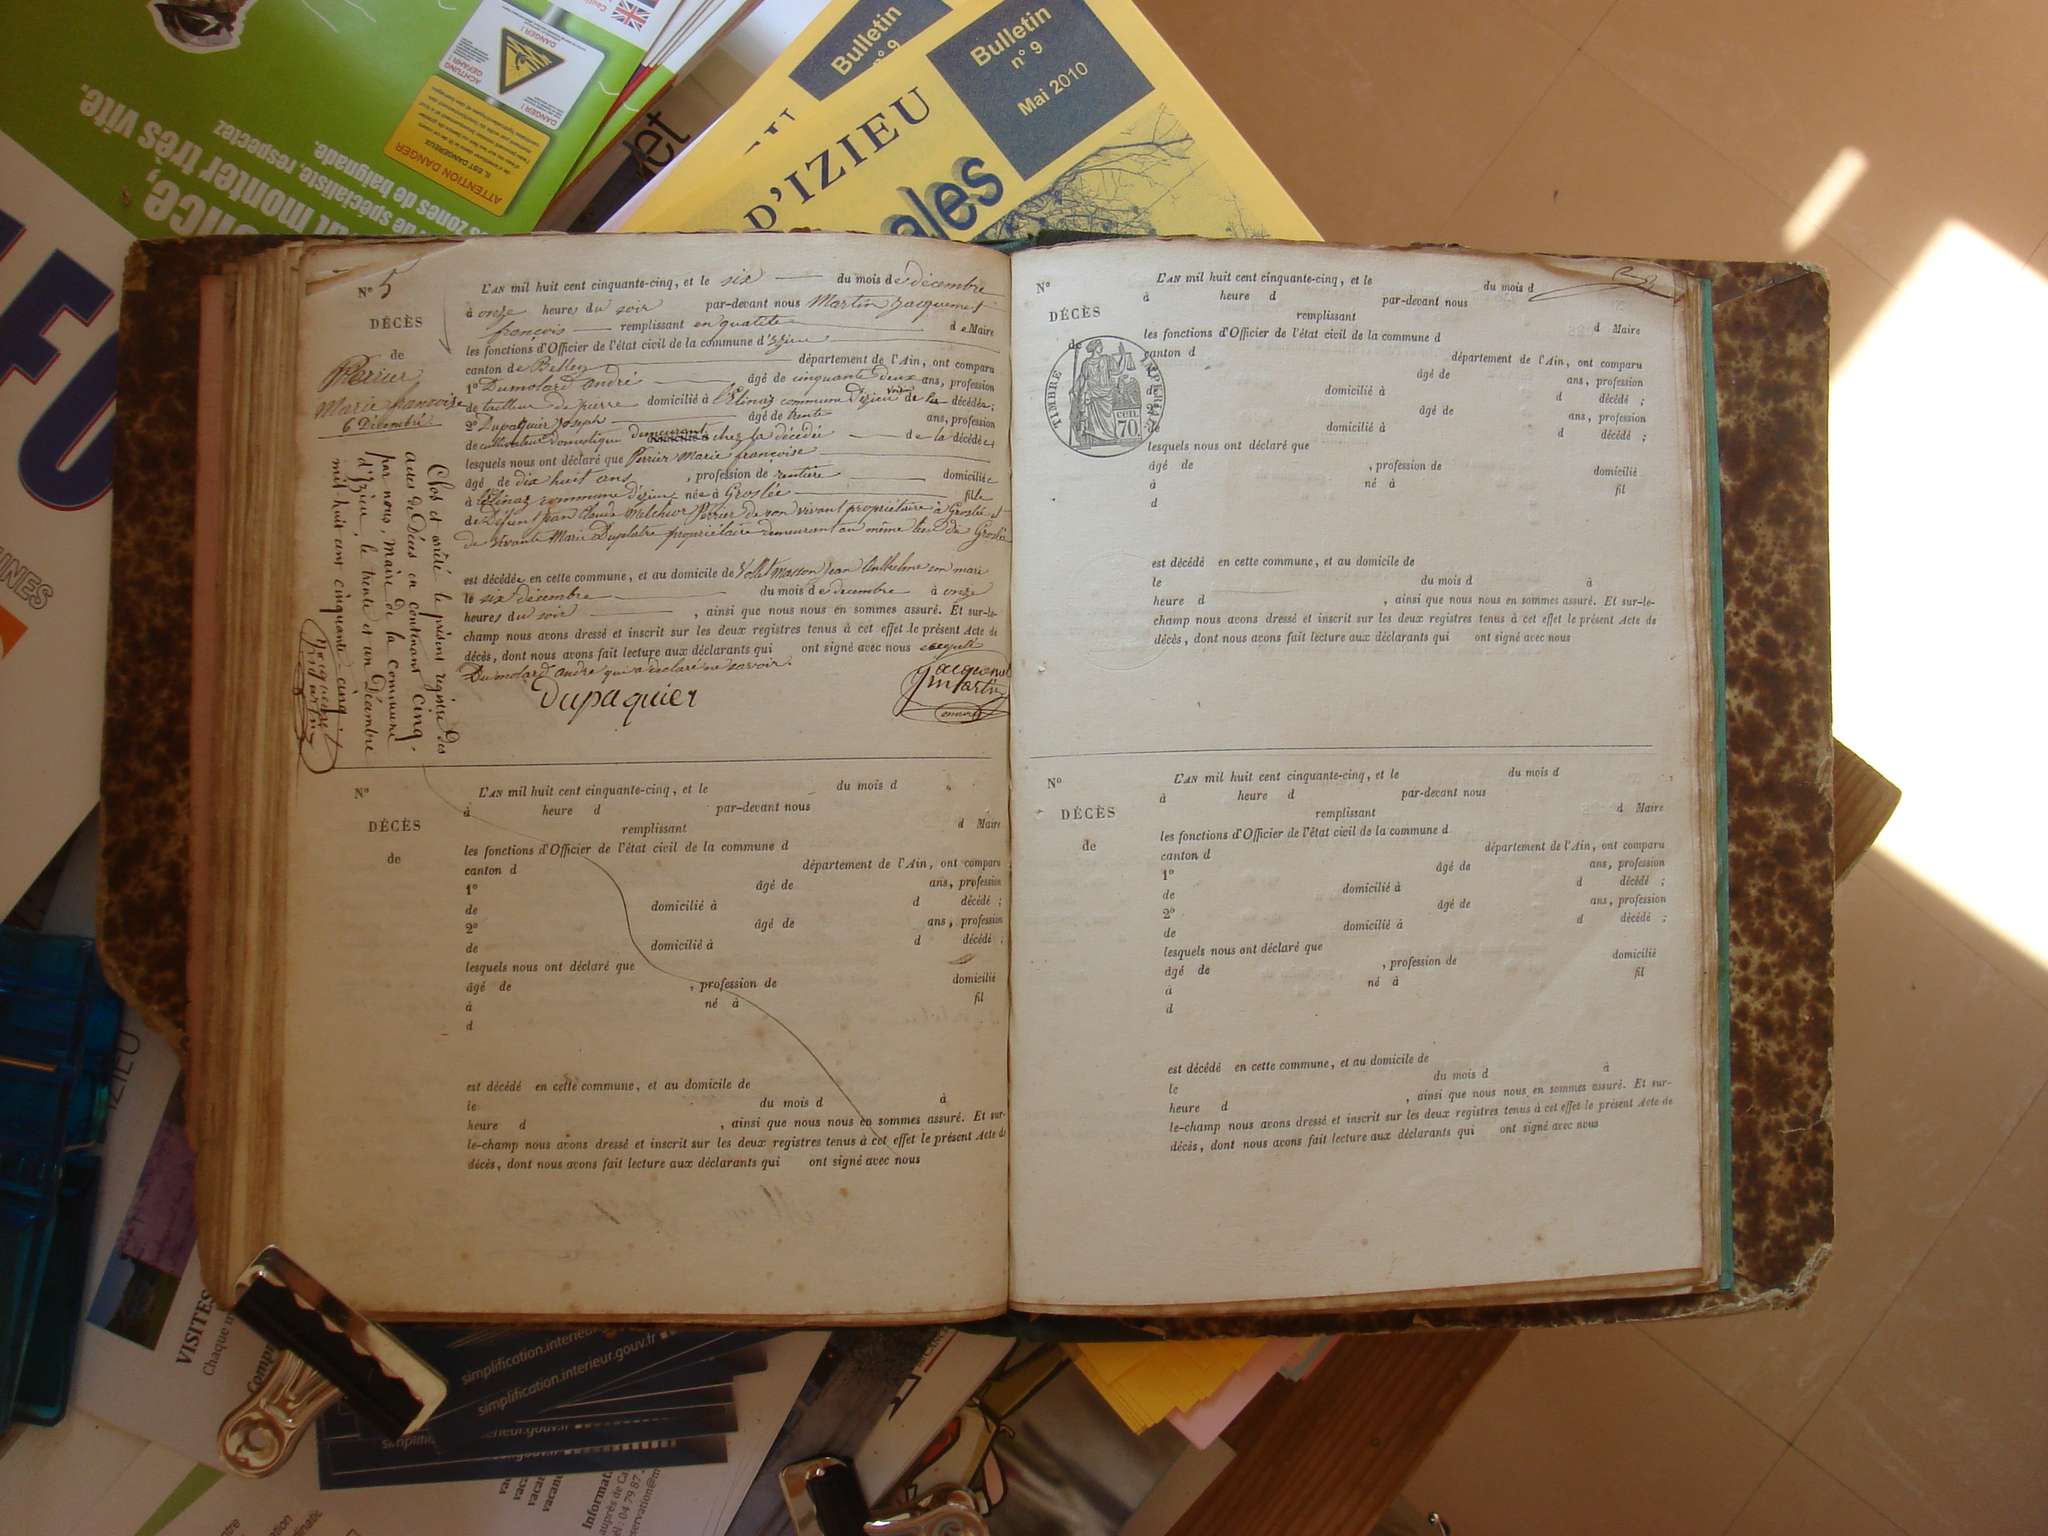 Bulletin
n° 9
Bulletin
n° 9
Mai 2010
D'IZIEU
ales
ATTENTION DANGER
IL EST DANGEREUX
ACHTUNG
GEFAHR !
DANGER !
DANGER !
nce,
ut monter très vite.
de spécialiste, respectez
s zones de baignade.
N° 5
DÉCÈS
de
Perrier
Marie françoise
6 Décembre
L'AN mil huit cent cinquante-cinq, et le six du mois de décembre
à onze heures du soir par-devant nous Martin Jacquemet
françois remplissant en qualité de Maire
les fonctions d'Officier de l'état civil de la commune d'izieu
canton de Belley département de l'Ain, ont comparu
1° Dumolard andré âgé de cinquante deux ans, profession
de tailleur de pierre domicilié à l'Elinaz commune d'izieu voisin de la décédée ;
2° Dupaquier Joseph âgé de trente ans, profession
de cultivateur domestique demeurant chez la décédée de la décédée ;
lesquels nous ont déclaré que Perrier Marie françoise
âgé de dix huit ans, profession de rentière domiciliée
à l'Elinaz commune d'izieu née à Groslée fille
de Défunt Jean Claude Melchior Perrier de son vivant propriétaire à Groslée et
de vivante Marie Duplatre propriétaire demeurant au même lieu de Groslée
est décédée en cette commune, et au domicile de Vollet Masson Jean Anthelme son mari
le six décembre du mois de decembre à onze
heures du soir, ainsi que nous nous en sommes assuré. Et sur-le-
champ nous avons dressé et inscrit sur les deux registres tenus à cet effet le présent Acte de
décès, dont nous avons fait lecture aux déclarants qui ont signé avec nous excepté
Dumolard andré qui a déclaré ne savoir.
Dupaquier
Jacquemet
Martin
Clos et arrêté le présent registre des
actes de Décès en contenant cinq.
par nous, Maire de la commune
d'Izieu, le trente et un Décembre
mil-huit cent cinquante-cinq
Jacquemet
Martin
N°
DÉCÈS
de
L'AN mil huit cent cinquante-cinq, et le du mois d
à heure d par-devant nous
remplissant d Maire
les fonctions d'Officier de l'état civil de la commune d
canton d département de l'Ain, ont comparu
1° âgé de ans, profession
de domicilié à d décédé ;
2° âgé de ans, profession
de domicilié à d décédé ;
lesquels nous ont déclaré que
âgé de , profession de domicilié
à né à fil
d
est décédé en cette commune, et au domicile de
le du mois d à
heure d , ainsi que nous nous en sommes assuré. Et sur-
le-champ nous avons dressé et inscrit sur les deux registres tenus à cet effet le présent Acte de
décès, dont nous avons fait lecture aux déclarants qui ont signé avec nous
N°
DÉCÈS
de
TIMBRE IMPERIAL
70 CEN.
L'AN mil huit cent cinquante-cinq, et le du mois d
à heure d par-devant nous
remplissant d Maire
les fonctions d'Officier de l'état civil de la commune d
canton d département de l'Ain, ont comparu
âgé de ans, profession
de domicilié à d décédé ;
2° âgé de ans, profession
de domicilié à d décédé ;
lesquels nous ont déclaré que
âgé de , profession de domicilié
à né à fil
d
est décédé en cette commune, et au domicile de
le du mois d à
heure d , ainsi que nous nous en sommes assuré. Et sur-le-
champ nous avons dressé et inscrit sur les deux registres tenus à cet effet le présent Acte de
décès, dont nous avons fait lecture aux déclarants qui ont signé avec nous
N°
DÉCÈS
de
L'AN mil huit cent cinquante-cinq, et le du mois d
à heure d par-devant nous
remplissant d Maire
les fonctions d'Officier de l'état civil de la commune d
canton d département de l'Ain, ont comparu
1° âgé de ans, profession
de domicilié à d décédé ;
2° âgé de ans, profession
de domicilié à d décédé ;
lesquels nous ont déclaré que
âgé de , profession de domicilié
à né à fil
d
est décédé en cette commune, et au domicile de
le du mois d à
heure d , ainsi que nous nous en sommes assuré. Et sur-
le-champ nous avons dressé et inscrit sur les deux registres tenus à cet effet le présent Acte de
décès, dont nous avons fait lecture aux déclarants qui ont signé avec nous
IZIEU
VISITES
Chaque
simplification.interieur.gouv.fr
simplification.interieur.gouv.fr